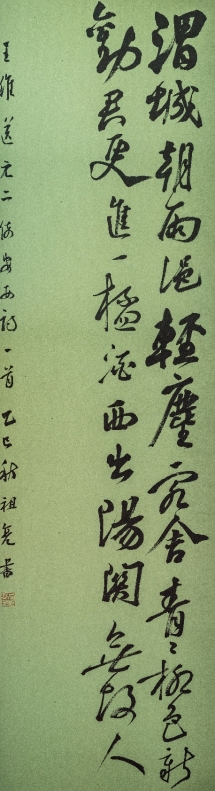 渭城朝雨浥輕塵客舍青々柳色新
勸君更進一杯酒西出陽関無故人
王維送元二使安西詩一首 乙巳秋祖亮書